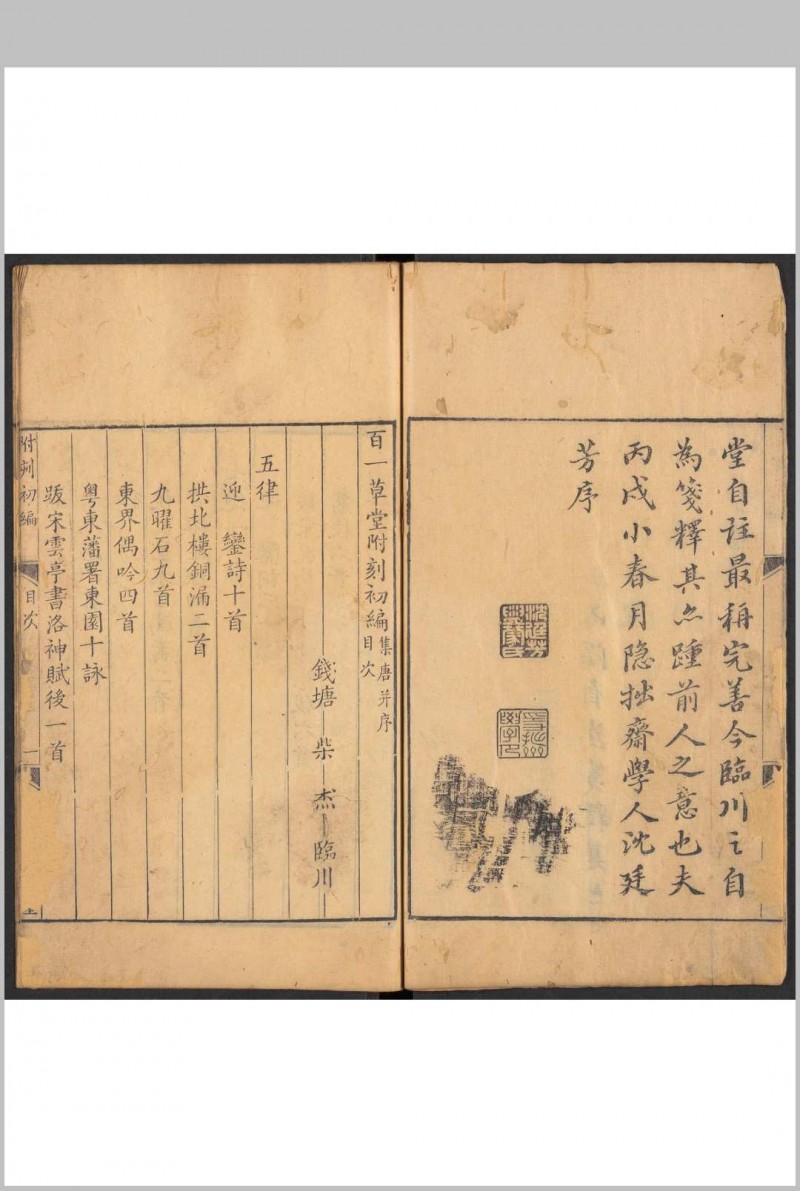 堂自註最稱完善今臨川之自
為箋釋其亦踵前人之意也夫
丙戌小春月隐拙齋學人沈廷
芳序
百一草堂附刻初編集唐并序目次
錢塘 柴 杰 臨川
五律
迎 鑾詩十首
拱北樓銅漏二首
九曜石九首
東界偶吟四首
粤東藩署東園十詠
跋宋雲亭書洛神賦後一首
附刻初編 目次 一